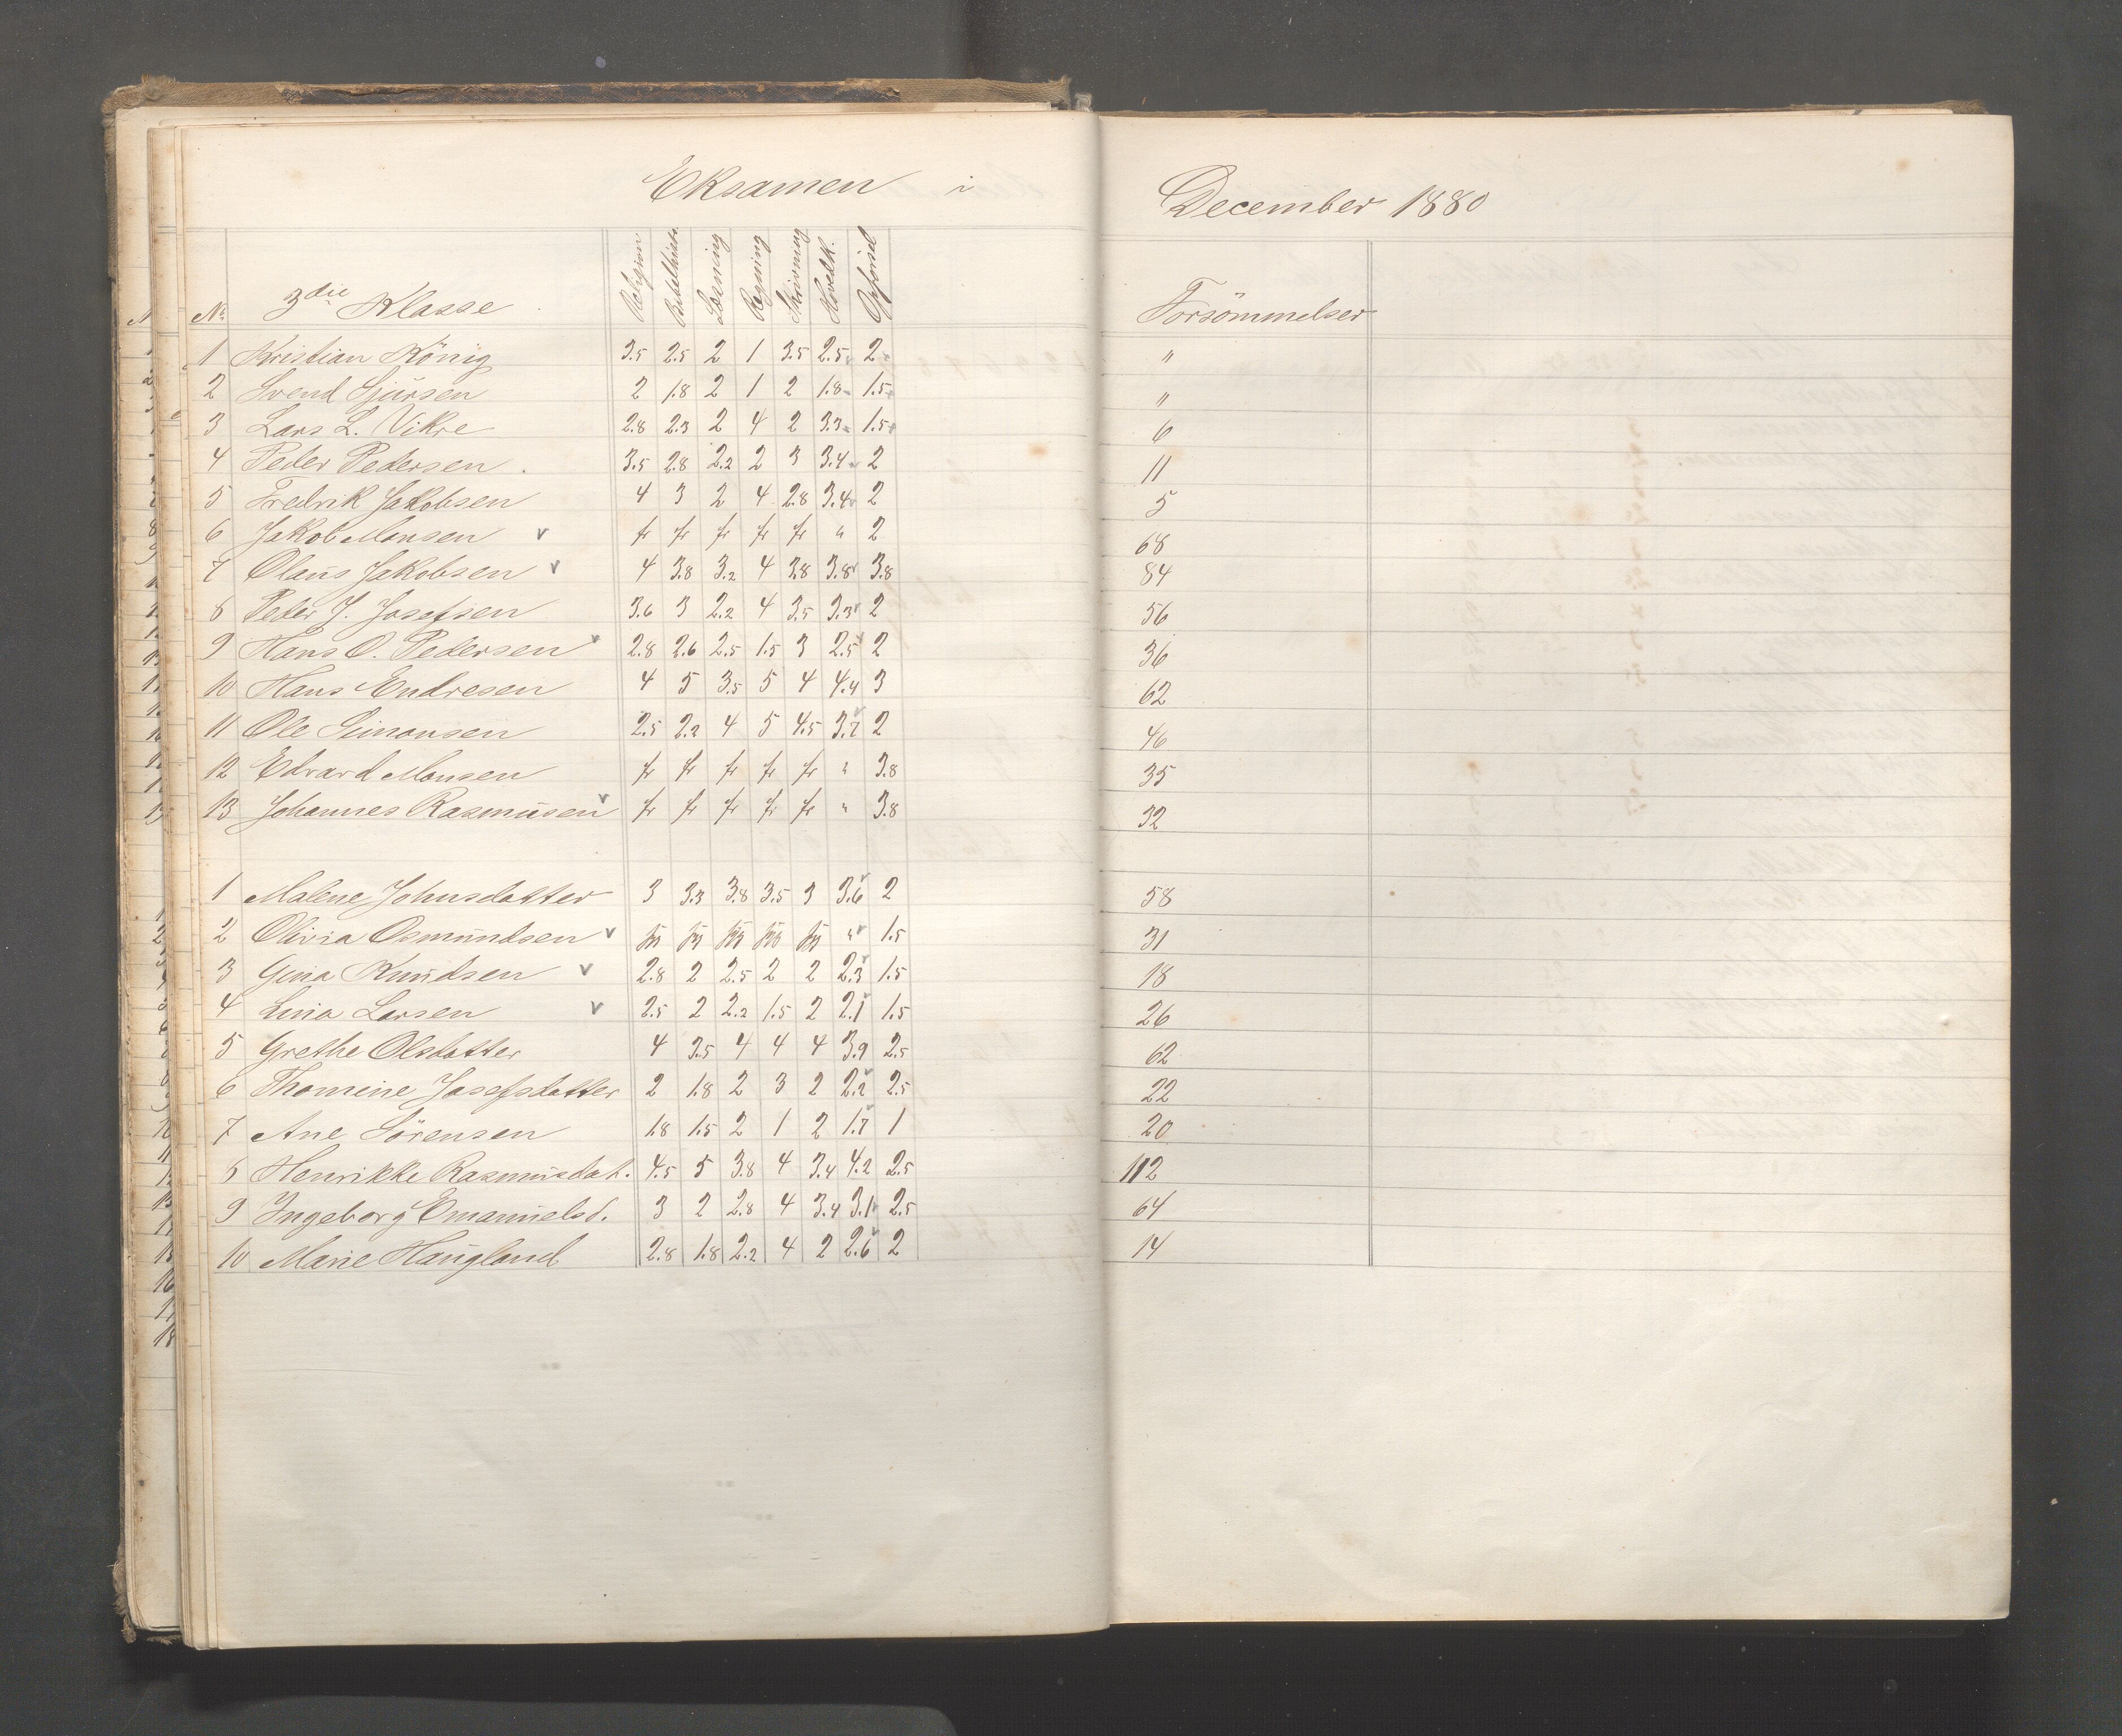 Eksamen i December 1880
No 3die Klasse Religion Bibelhist. Læsning Regning Skrivning Hovedk. Opførsel Forsömmelser
1 Kristian König 3.5 2.5 2 1 3.5 2.5 2 "
2 Svend Sjursen 2 1.8 2 1 2 1.8 1.5 "
3 Lars L. Vikre 2.8 2.3 2 4 2 3.3 1.5 6
4 Peder Pedersen . 3.5 2.8 2.2 2 3 3.4 2 11
5 Fredrik Jakobsen 4 3 2 4 2.8 3.4 2 5
6 Jakob Monsen v fr fr fr fr fr " 2 68
7 Olaus Jakobsen v 4 3.8 3.2 4 3.8 3.8 3.8 84
8 Peder J. Josefsen 3.6 3 2.2 4 3.5 3.3 2 56
9 Hans O. Pedersen v 2.8 2.6 2.5 1.5 3 2.5 2 36
10 Hans Endresen 4 5 3.5 5 4 4.4 3 62
11 Ole Simonsen 2.5 2.2 4 5 4.5 3.7 2 46
12 Edvard Monsen fr fr fr fr fr " 3.8 35
13 Johannes Rasmusen v fr fr fr fr fr " 3.8 32
1 Malene Johnsdatter 3 3.3 3.8 3.5 3 3.6 2 58
2 Olivia Osmundsen v " 1.5 31
3 Gina Knudsen v 2.8 2 2.5 2 2 2.3 1.5 18
4 Lina Larsen v 2.5 2 2.2 1.5 2 2.1 1.5 26
5 Grethe Olsdatter 4 3.5 4 4 4 3.9 2.5 62
6 Thomine Josefsdatter 2 1.8 2 3 2 2.2 2.5 22
7 Ane Sörensen 1.8 1.5 2 1 2 1.7 1 20
8 Henrikke Rasmusdat. 4.5 5 3.8 4 3.4 4.2 2.5 112
9 Ingeborg Emanuelsd. 3 2 2.8 4 3.4 3.1 2.5 64
10 Marie Haugland 2.8 1.8 2.2 4 2 2.6 2 14